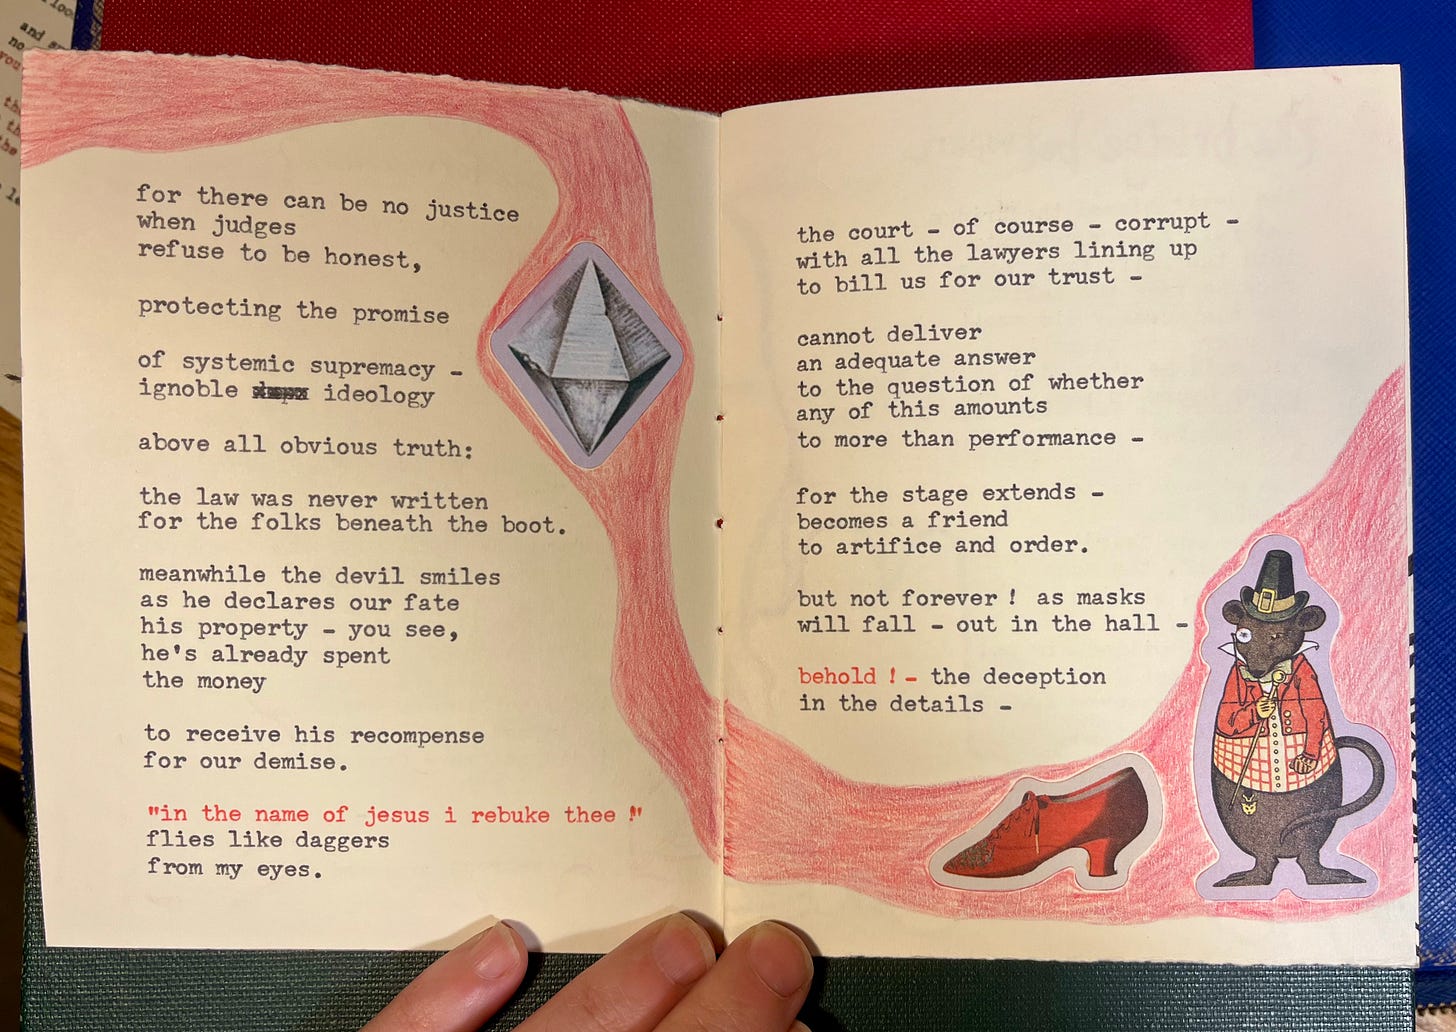 for there can be no justice
when judges
refuse to be honest,
protecting the promise
of systemic supremacy -
ignoble ideology
above all obvious truth:
the law was never written
for the folks beneath the boot.
meanwhile the devil smiles
as he declares our fate
his property - you see,
he's already spent
the money
to receive his recompense
for our demise.
"in the name of jesus i rebuke thee !"
flies like daggers
from my eyes.
the court - of course - corrupt -
with all the lawyers lining up
to bill us for our trust -
cannot deliver
an adequate answer
to the question of whether
any of this amounts
to more than performance -
for the stage extends -
becomes a friend
to artifice and order.
but not forever ! as masks
will fall - out in the hall -
behold ! - the deception
in the details -